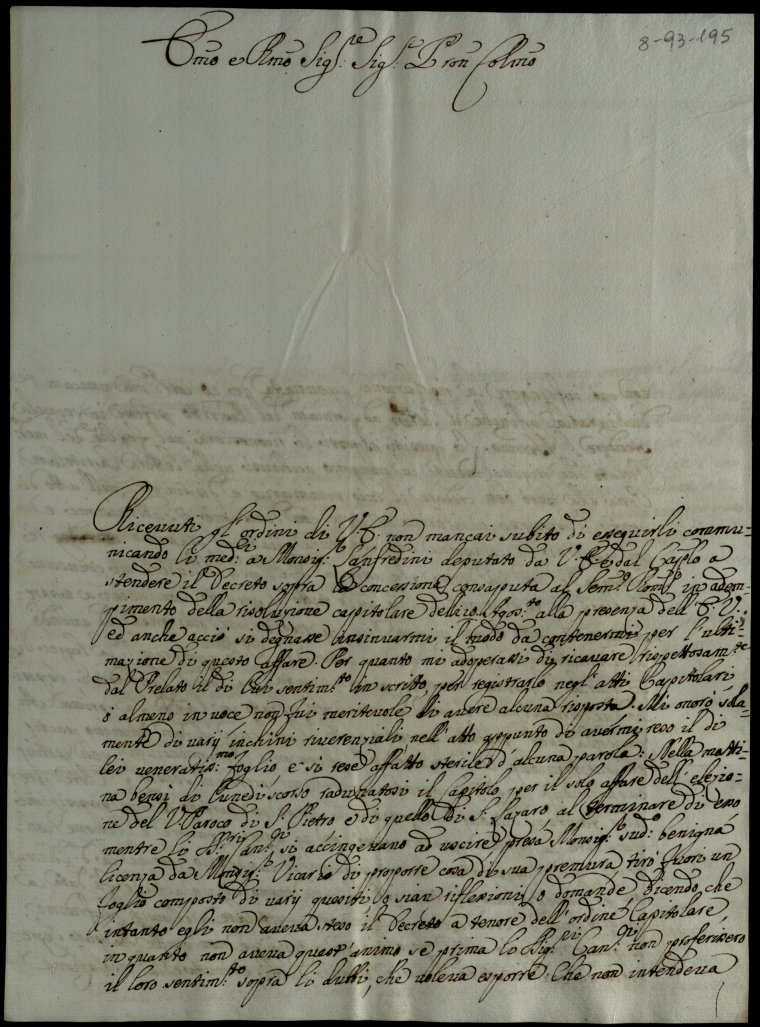 8-93-195
Emo e Rmo Sig.re Sig.r P ron Colmo
Ricevuti gl'ordini di V. E. non mancai subito di esseguirli commu=
nicando li med.i a Monsig.r Sanfredini deputato da V. E. e dal Caplo a
stendere il Decreto sopra la concessione consaputa al Sem.o Rom.o in adem=
pimento della risoluzione capitolare delli 10. Agos.to alla presenza dell' E. V.
ed anche acciò si degnasse insinuarmi il modo da contenermi per l'ulti=
mazione di questo affare. Per quanto mi adoperassi di ricavare rispettosam.te
dal Prelato il di Lui sentim.to in scritto, per registrarlo negl'atti Capitolari
ò almeno in voce, non fui meritevole di avere alcuna risposta. Mi onorò sola=
mente di varij inchini riverenziali nell'atto appunto di avermi reso il di
lei veneratis.mo foglio, e si rese affatto sterile d'alcuna parola. Nella matti=
na bensi di Lunedì scorso radunatosi il Capitolo per il solo affare dell'elezio=
ne del V. Paroco di S. Pietro e di quello di S. Lazaro al terminare di esso
mentre li Sig.ri Can.ci si accingevano ad uscire, presa Monsig.r sud.o benigna
licenza da Monsig.r Vicario di proporre cosa di sua premura, tirò fuori un
foglio composto di varij quesiti, ò sian riflessioni, ò domande, dicendo, che
intanto egli non aveva steso il Decreto a tenore dell'ordine Capitolare,
in quanto non aveva quest'animo se prima li Sig.ri Can.ci non proferissero
il loro sentim.to sopra li dubbi, che voleva esporre. Che non intendeva